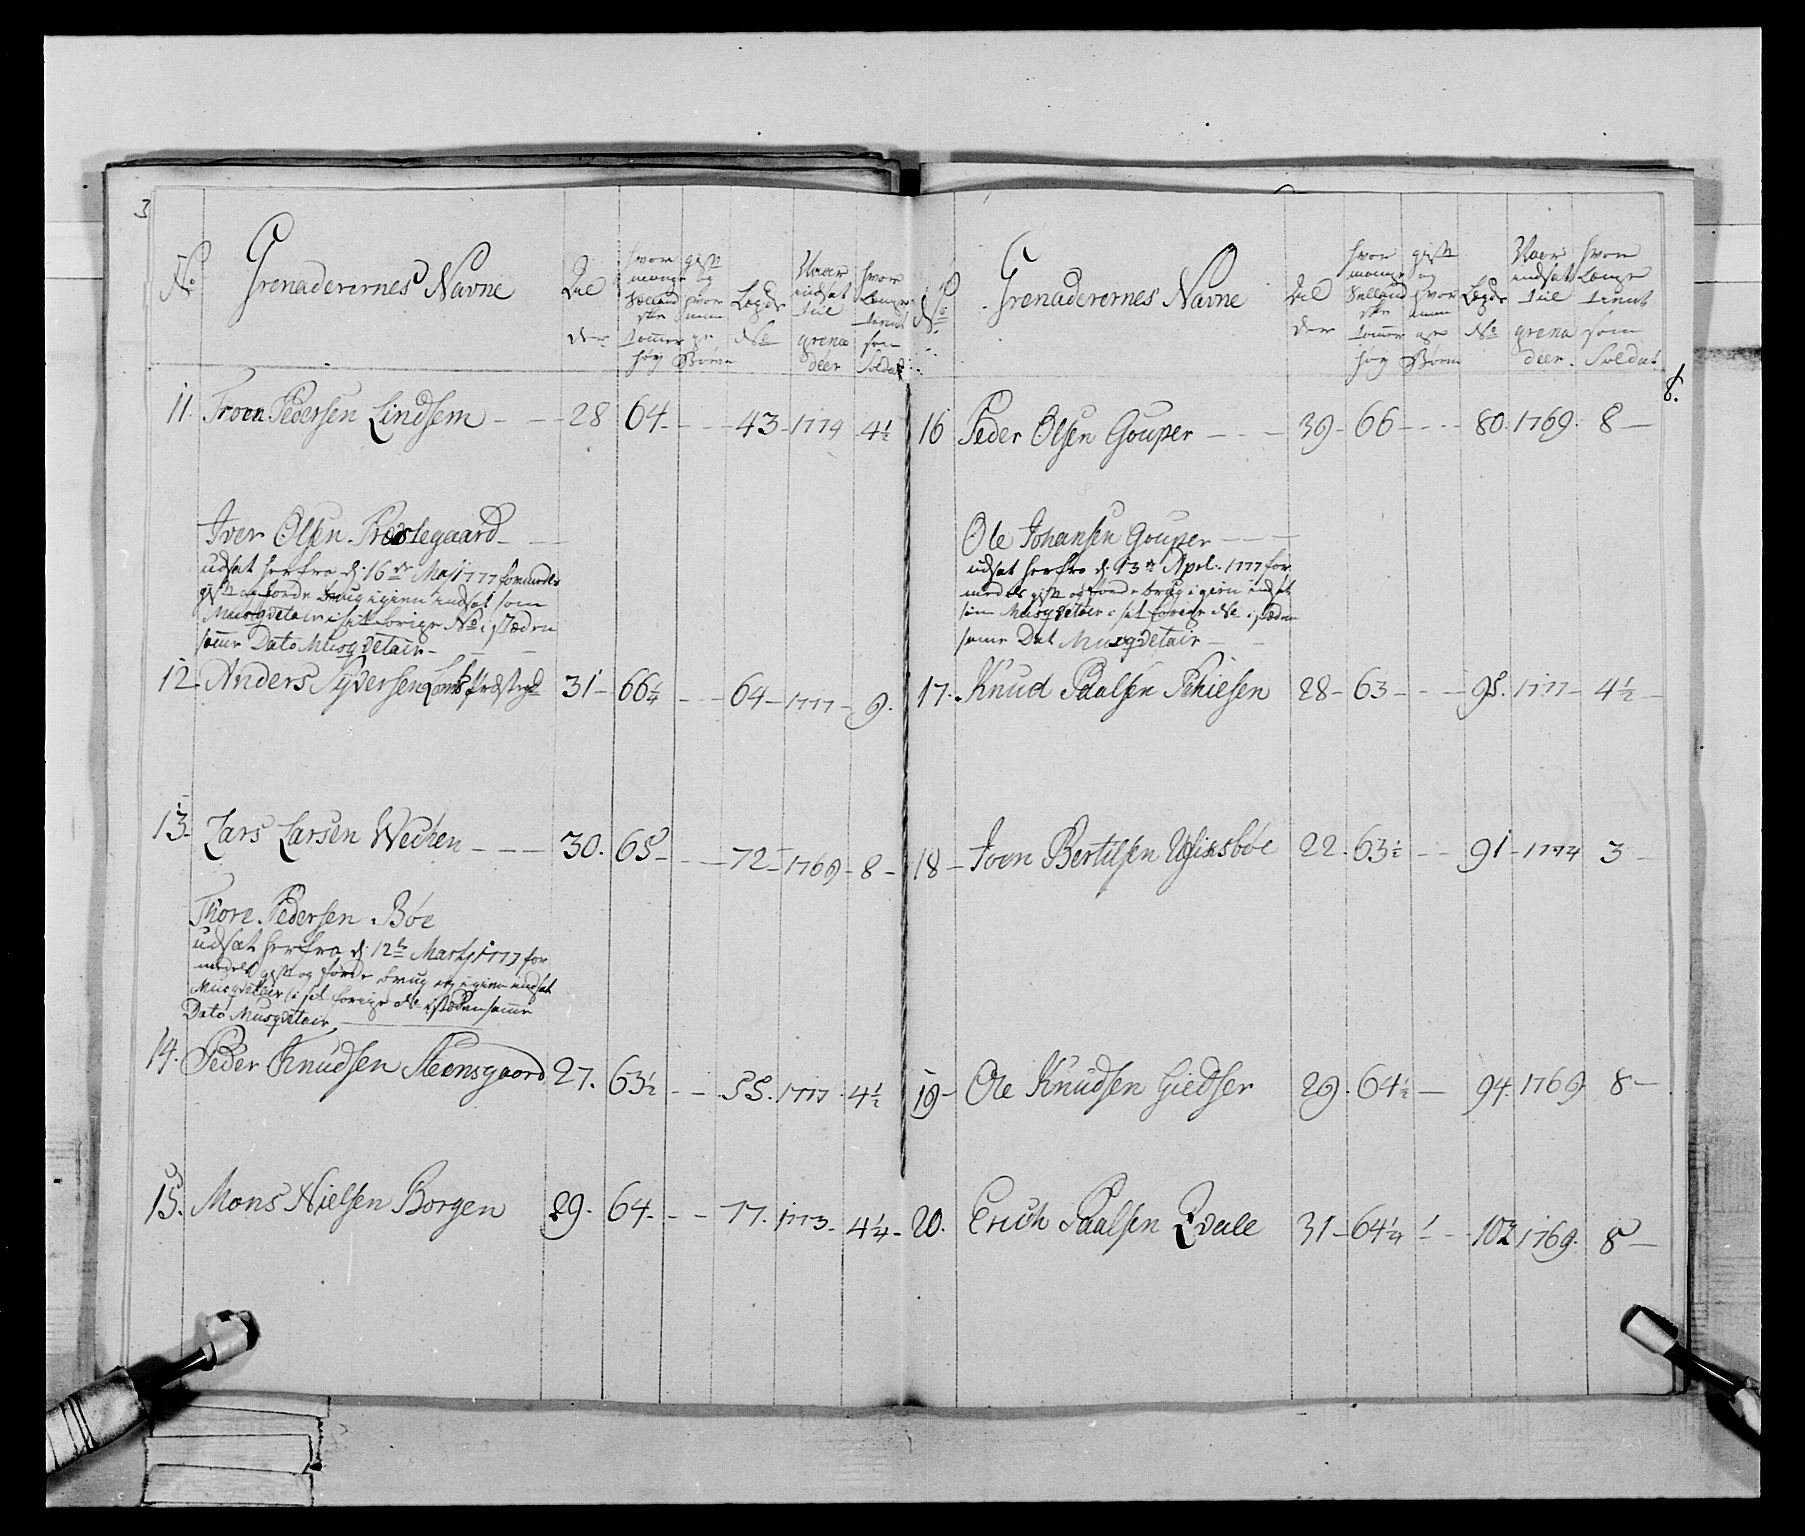 3
No
Grenaderernes Navne
Al
der
hvor
mange
Sælland
ske
tommer
høy
gift
og
hvor
man
ge
Børn
Lægds
No
Naar
indsat
til
grena
deer
hvor
Længe
tient
som
Soldat
11. Troen Pedersen Lindsem - - 28 64 - - 43 - 1774 4½
Iver Olsen Præstegaard - -
udsat herfra d: 16de Maj 1777 formedelst
gift og Jorde brug igien indsat som
Musqvetair i sit forige No i stæden
samme Dato Musqvetair -
12. Anders Syversen Loms Præstegd 31 - 66¼ - - 64 - 1777 - 9.
13. Lars Larsen Wechen - - - 30. 65 - - - 72 - 1769 - 8 -
Thore Pedersen Bøe
udsat herfra d: 12te Martj 1777 for
medelst gift og Jorde brug og igien indsat
Musqvetair i sit forige No i stæden samme
Dato Musqvetair.
14. Peder Knudsen Steensgaard 27. 63½ - - 55. 1777. 4½
15. Mons Nielsen Borgen 29. 64 - - - 77. 1773 - 4¼ -
No
Grenaderernes Navne
Al
der
hvor
mange
Sælland
ske
tommer
høy
gift
og
hvor
man
ge
Børn
Lægds
No
Naar
indsat
til
grena
deer.
hvor
Længe
tient
som
Soldat
8.
16 Peder Olsen Gouper - - - 39 - 66 - - - 80. 1769. 8 -
Ole Johansen Gouper - - -
udsat herfra d. 13de April 1777 for
medelst gift og Jorde brug igien indsat
som Musqvetair i sit forige No i stæden
samme Dat Musqvetair -
17. Knud Paalsen Skiesen 28 - 63 - - - 95. 1777 - 4½ -
18 - Joen Bertilsen 22. 63½ - - 91 - 1774 3 -
19 - Ole Knudsen Giedser 29. 64½ - 94. 1769. 8 -
20. Erich Paalsen Qvale 31 - 64¼ 1 - 102 1769. 8 -